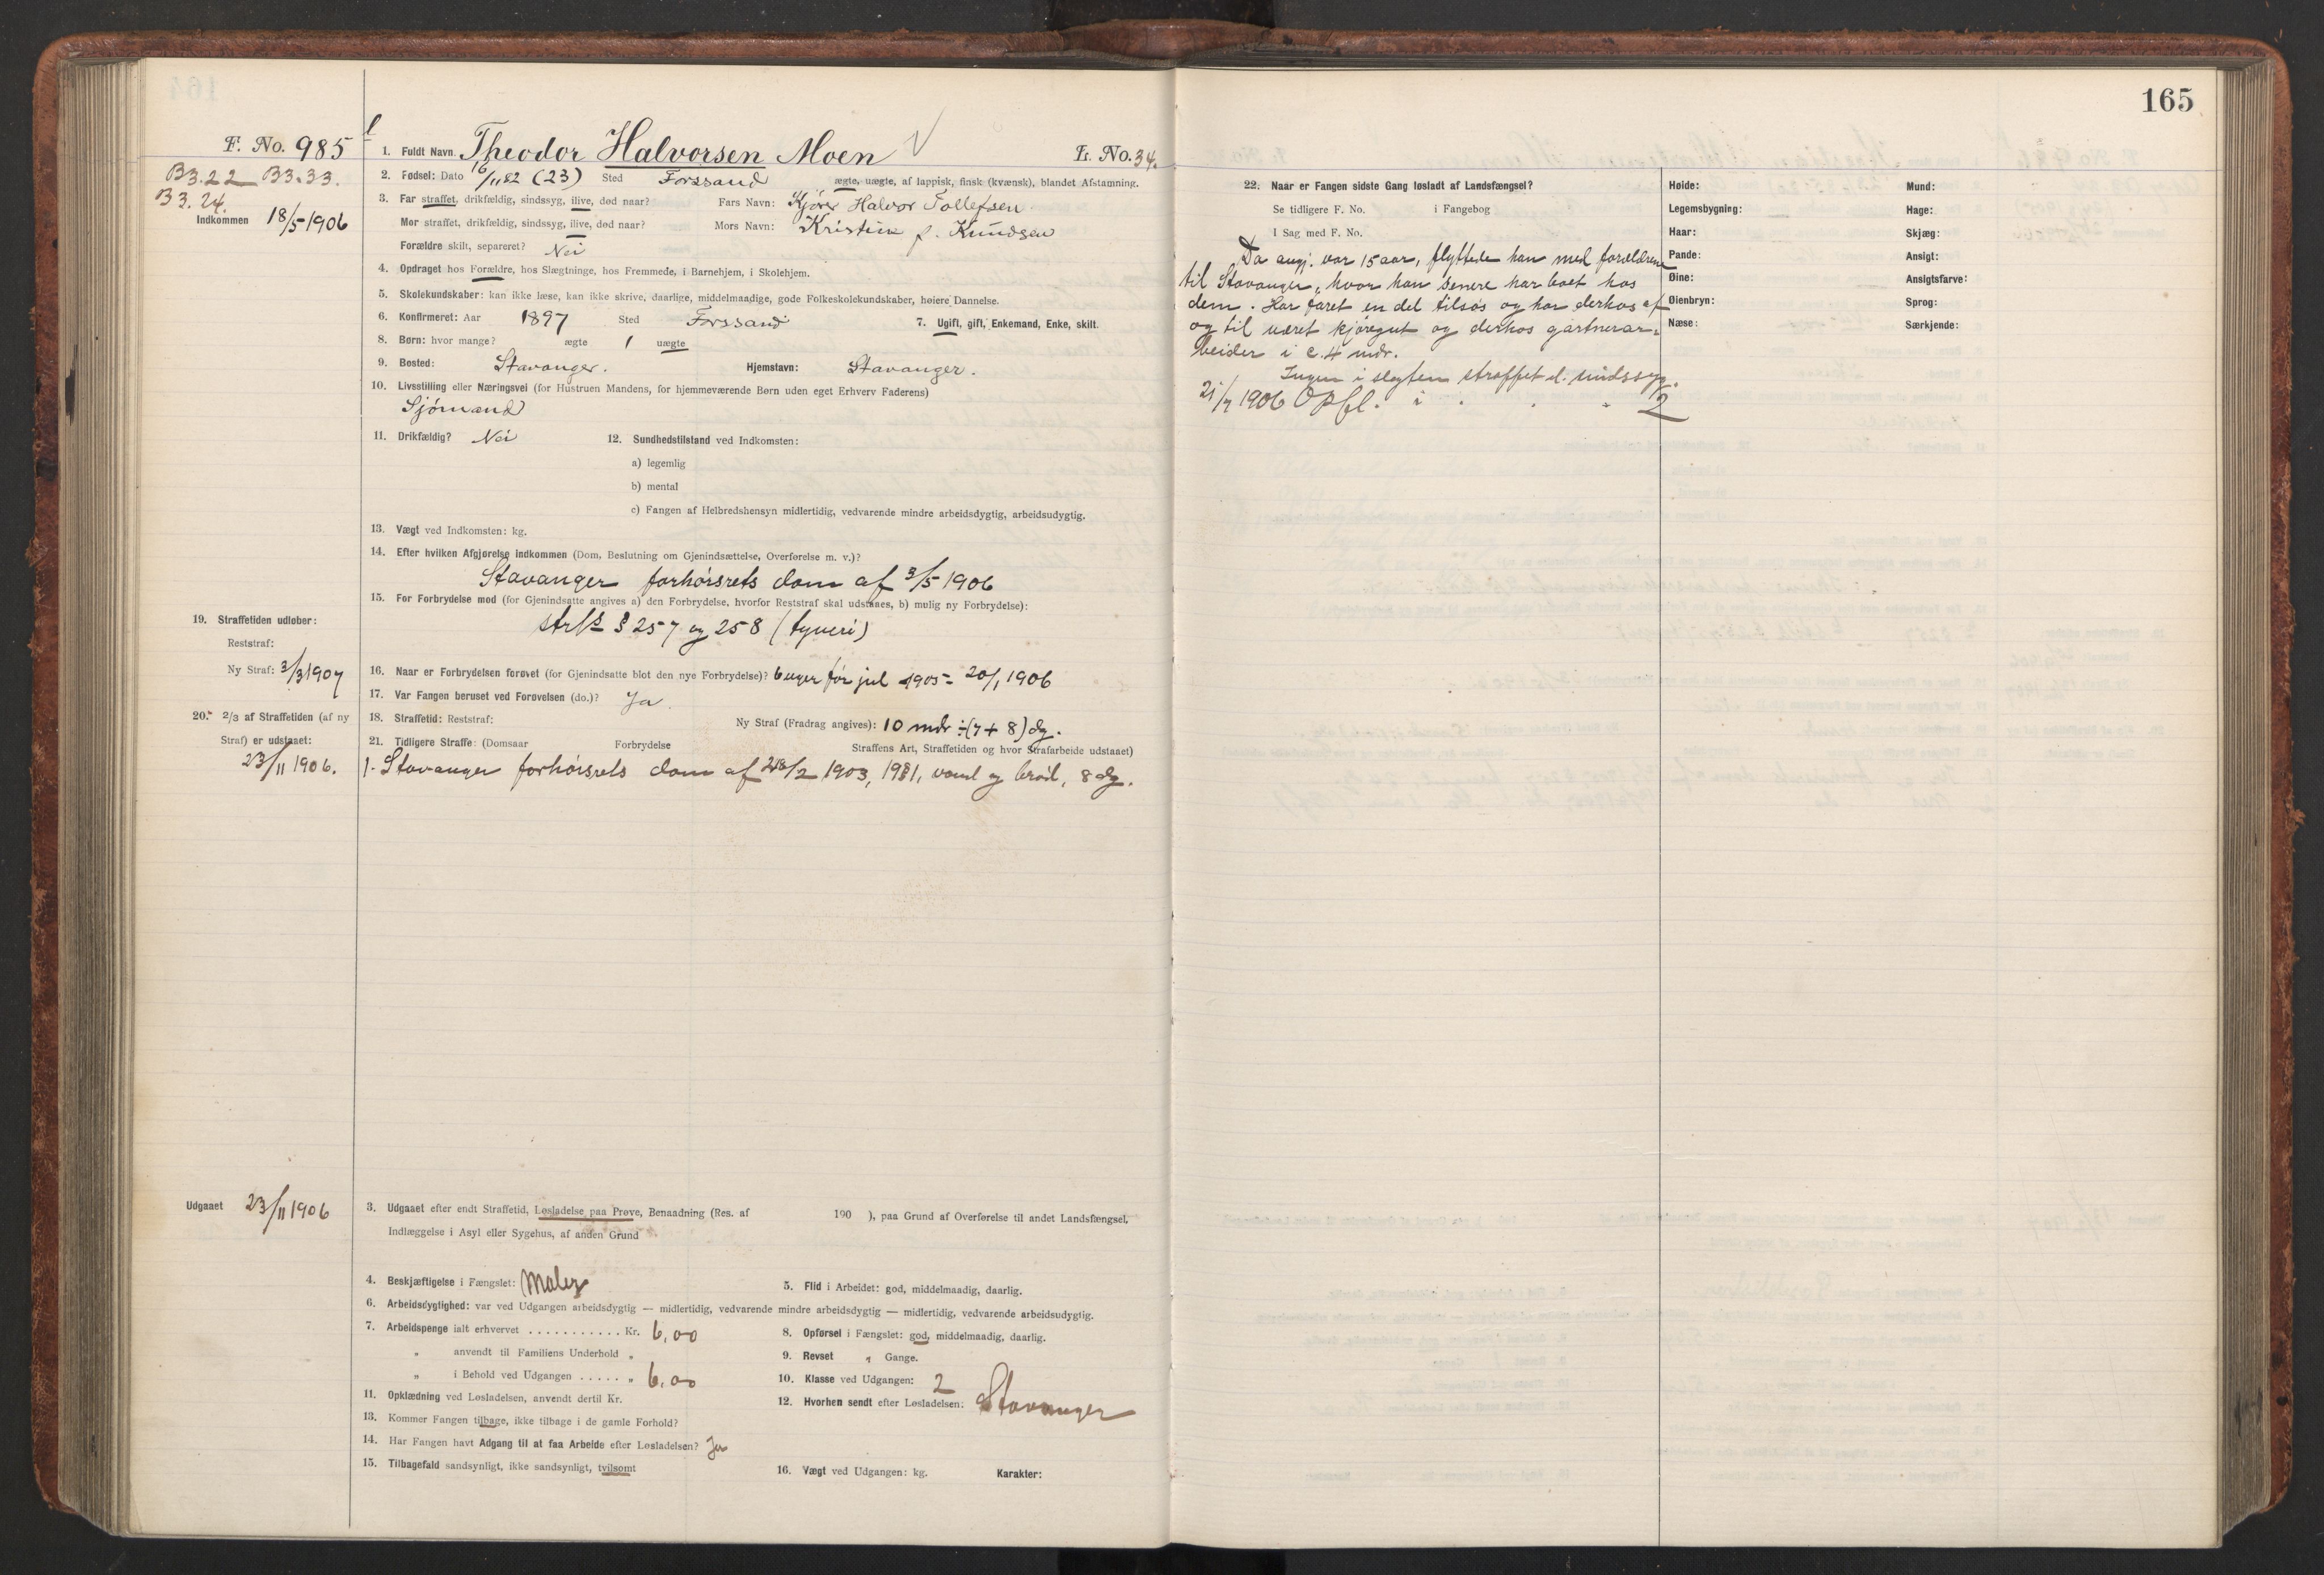 165
F. No. 985
B3.22 B3.33.
B3.24.
Indkommen 18/5 1906
1. Fuldt Navn. Theodor Halvorsen Moen L. No. 34.
2. Fødsel: Dato 16/11 82 (23) Sted Forssand ægte, uægte, af lappisk, finsk (kvænsk), blandet Afstamning.
3. Far straffet, drikfældig, sindssyg, ilive, død naar? Fars Navn: Kjører Halvor Tollefsen
Mor straffet, drikfældig, sindssyg, ilive, død naar? Mors Navn: Kristine f. Knudsen
Forældre skilt, separeret? Nei
4. Opdraget hos Forældre, hos Slægtninge, hos Fremmede, i Barnehjem, i Skolehjem.
5. Skolekundskaber: kan ikke læse, kan ikke skrive, daarlige, middelmaadige, gode Folkeskolekundskaber, høiere Dannelse.
6. Konfirmeret: Aar 1897 Sted Forssand 7. Ugift, gift, Enkemand, Enke, skilt.
8. Børn: hvor mange? ægte 1 uægte
9. Bosted: Stavanger. Hjemstavn: Stavanger.
10. Livsstilling eller Næringsvei (for Hustruen Mandens, for hjemmeværende Børn uden eget Erhverv Faderens)
Sjømand
11. Drikfældig? Nei 12. Sundhedstilstand ved Indkomsten:
a) legemlig
b) mental
c) Fangen af Helbredshensyn midlertidig, vedvarende mindre arbeidsdygtig, arbeidsudygtig.
13. Vægt ved Indkomsten: kg.
14. Efter hvilken Afgjørelse indkommen (Dom, Beslutning om Gjenindsættelse, Overførelse m. v.)?
Stavanger forhørsrets dom af 3/5 1906
15. For Forbrydelse mod (for Gjenindsatte angives a) den Forbrydelse, hvorfor Reststraf skal udstaaes, b) mulig ny Forbrydelse):
§ 257 og 258 (tyveri)
19. Straffetiden udløber:
Reststraf:
Ny Straf: 3/3 1907
16. Naar er Forbrydelsen forøvet (for Gjenindsatte blot den nye Forbrydelse)? 6 uger før jul 1905 - 20/1 1906
17. Var Fangen beruset ved Forøvelsen (do.)? Ja.
20. 2/3 af Straffetiden (af ny
Straf) er udstaaet:
23/11 1906.
18. Straffetid: Reststraf: Ny Straf (Fradrag angives): 10 mdr ÷ (7 + 8) dg.
21. Tidligere Straffe: (Domsaar Forbrydelse Straffens Art, Straffetiden og hvor Strafarbeide udstaaet)
1. Stavanger forhørsrets dom af /2 1903, vand og brød, 8 dg.
Udgaaet 23/11 1906
3. Udgaaet efter endt Straffetid, Løsladelse paa Prøve, Benaadning (Res. af 190 ), paa Grund af Overførelse til andet Landsfængsel,
Indlæggelse i Asyl eller Sygehus, af anden Grund
4. Beskjæftigelse i Fængslet: Maler 5. Flid i Arbeidet: god, middelmaadig, daarlig.
6. Arbeidsdygtighed: var ved Udgangen arbeidsdygtig — midlertidig, vedvarende mindre arbeidsdygtig — midlertidig, vedvarende arbeidsudygtig.
7. Arbeidspenge ialt erhvervet . . . . . . . . . . . Kr. 6,00 8. Opførsel i Fængslet: god, middelmaadig, daarlig.
„ anvendt til Familiens Underhold „ 9. Revset „ Gange.
„ i Behold ved Udgangen . . . . . „ 6,00 10. Klasse ved Udgangen: 2
11. Opklædning ved Løsladelsen, anvendt dertil Kr. 12. Hvorhen sendt efter Løsladelsen: Stavanger
13. Kommer Fangen tilbage, ikke tilbage i de gamle Forhold?
14. Har Fangen havt Adgang til at faa Arbeide efter Løsladelsen? Ja
15. Tilbagefald sandsynligt, ikke sandsynligt, tvilsomt 16. Vægt ved Udgangen: kg. Karakter:
22. Naar er Fangen sidste Gang løsladt af Landsfængsel?
Se tidligere F. No. i Fangebog
I Sag med F. No.
Da angj. var 15 aar, flyttede han med forældrene
til Stavanger, hvor han senere har boet hos
dem. Har faret en del tilsøs og har derhos af
og til været kjøregut og derhos gartnerar-
beider i c. 4 mdr.
Ingen i slegten straffet el. sindssyg.
21/7 1906 Opfl. i " " " 2
Høide: Mund:
Legemsbygning: Hage:
Haar: Skjæg:
Pande: Ansigt:
Øine: Ansigtsfarve:
Øienbryn: Sprog:
Næse: Særkjende: